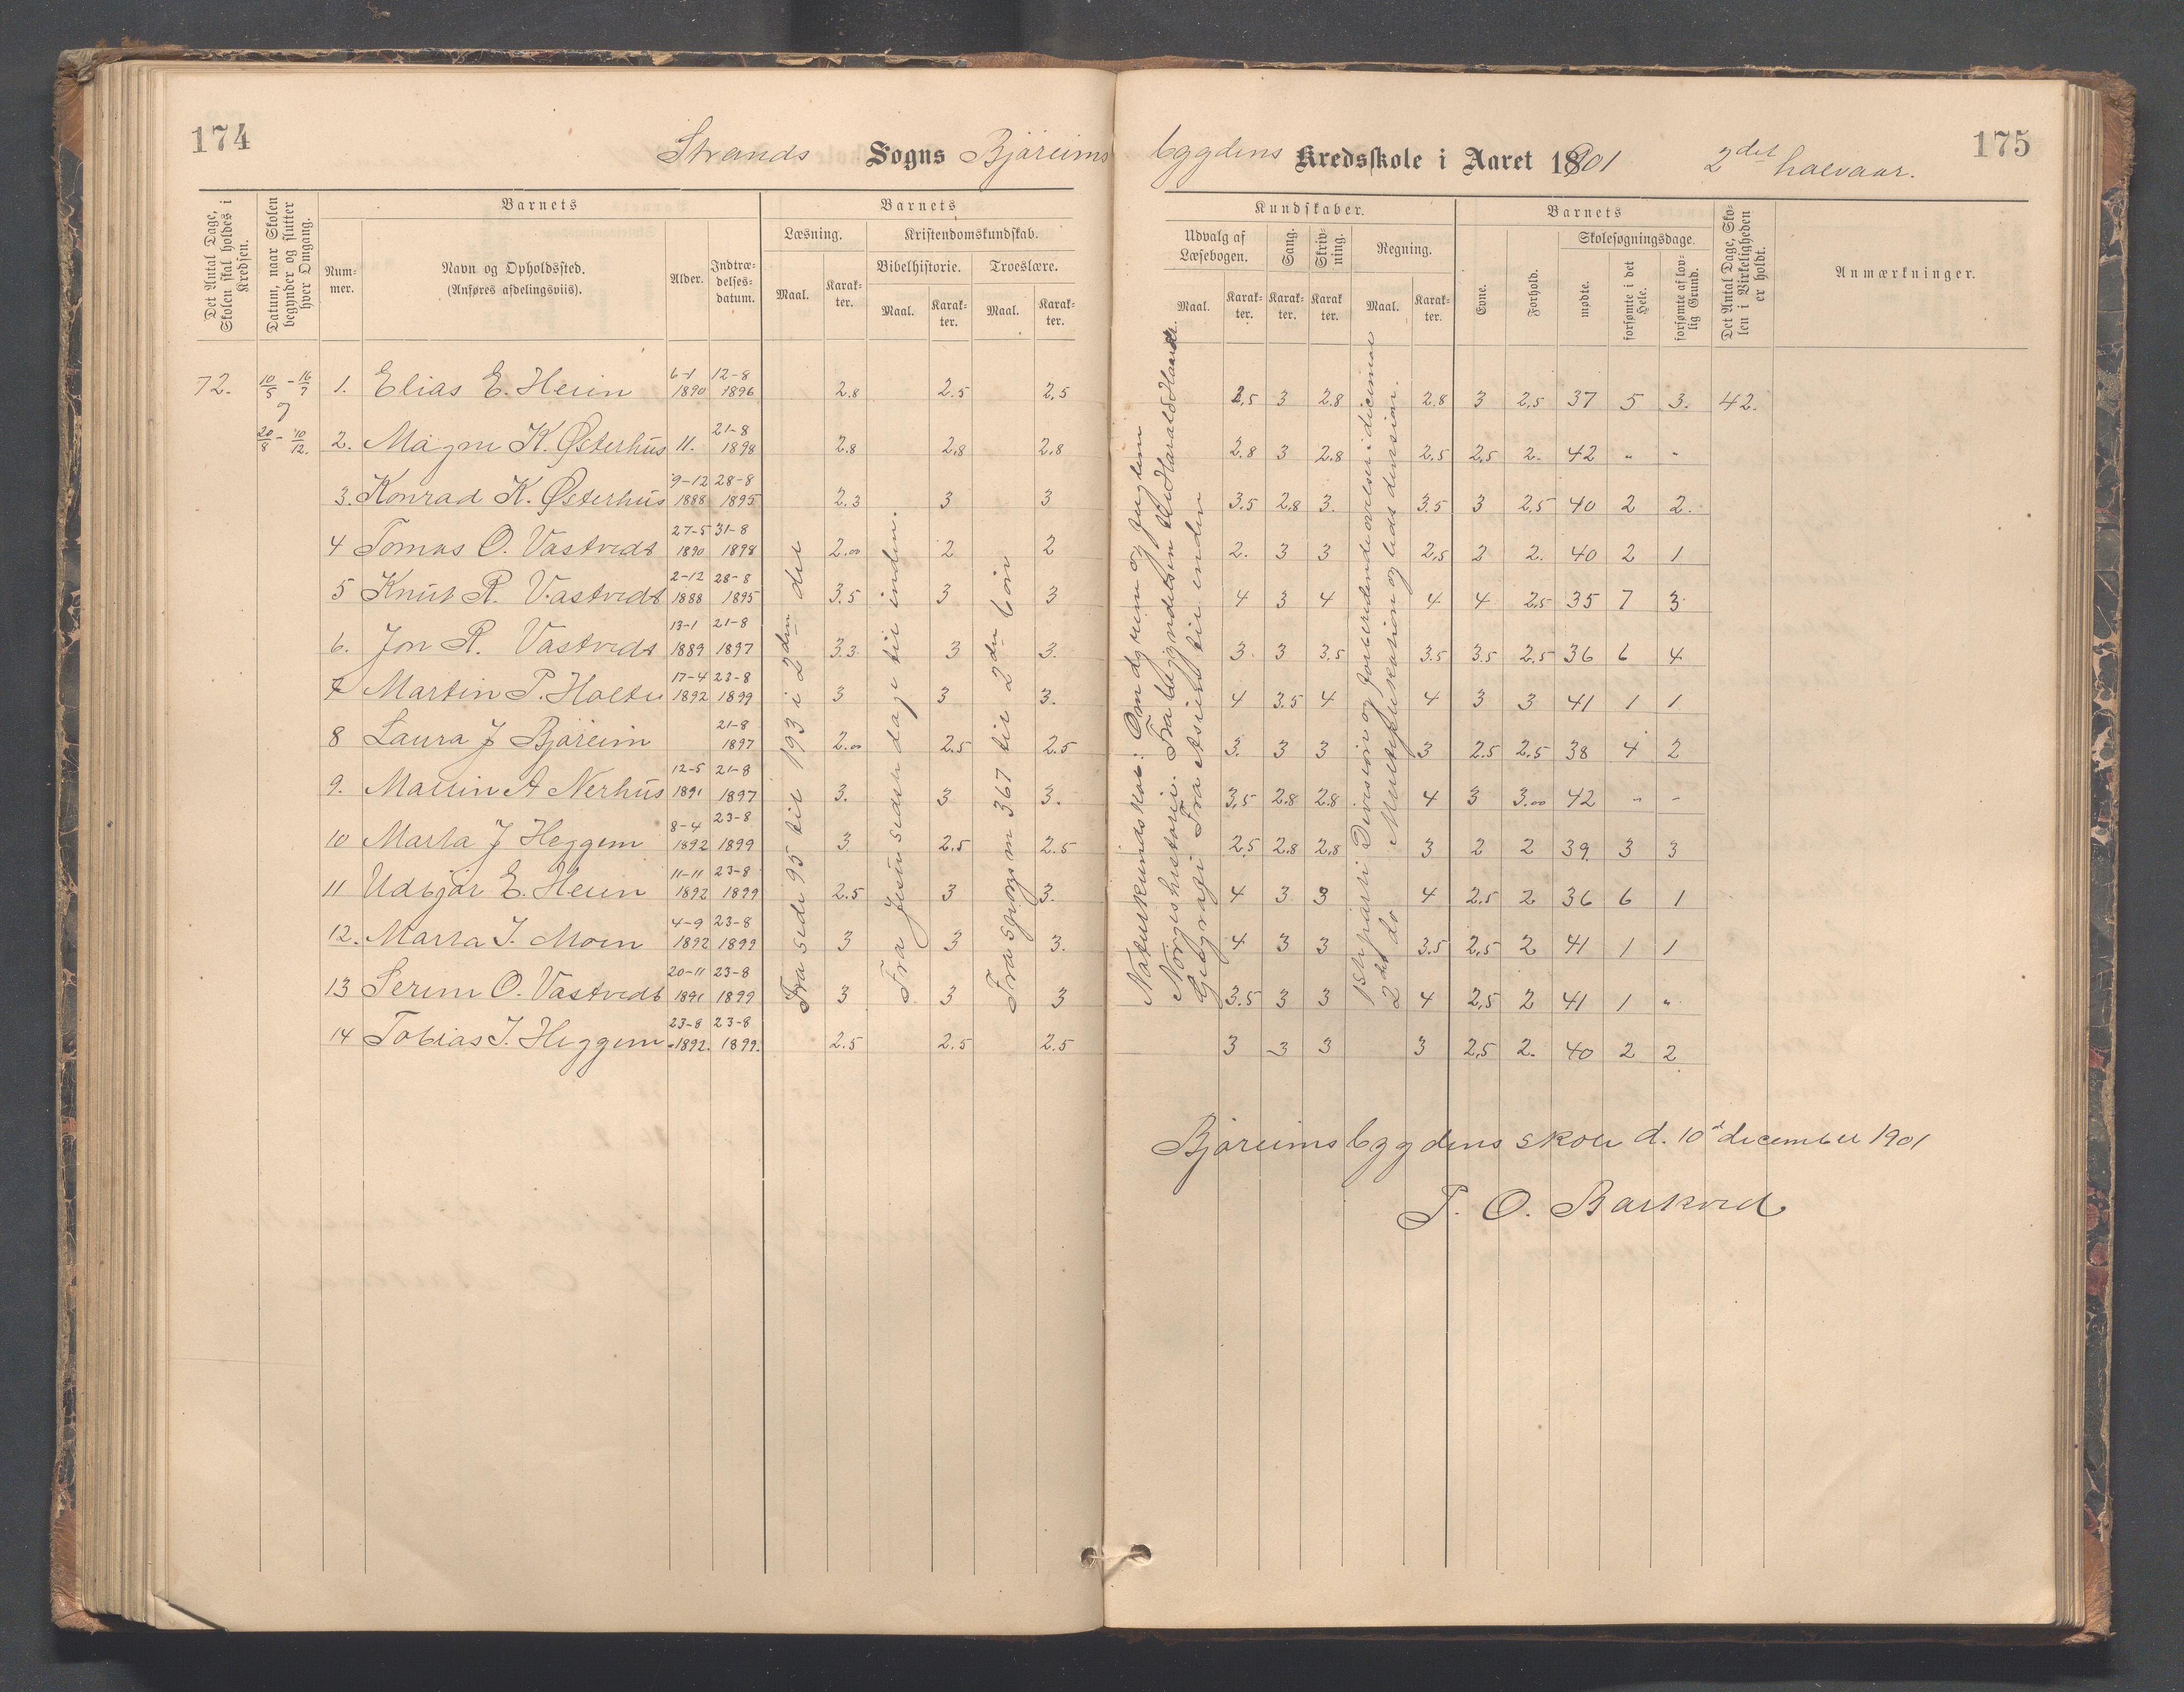 174
Strands Sogns Bjäreims
bygdens Kredsskole i Aaret 1901 2det halvaar.
175
Det Antal Dage, Skolen skal holdes i Kredsen.
Datum, naar Skolen begynder og slutter hver Omgang.
Barnets
Nummer.
Navn og Opholdssted.
(Anføres afdelingsviis).
Alder.
Indtrædelsesdatum.
Barnets
Læsning.
Kristendomskundskab.
Bibelhistorie.
Troeslære.
Maal. Karakter. Maal. Karakter. Maal. Karakter.
Kundskaber.
Udvalg af Læsebogen.
Sang.
Skrivning.
Regning.
Maal. Karakter. Karakter. Karakter. Maal. Karakter.
Barnets
Evne.
Forhold.
Skolesøgningsdage.
mødte.
forsømte i det Hele.
forsømte af lovlig Grund.
Det Antal Dage, Skolen i Virkeligheden er holdt.
Anmærkninger.
72. 10/5 - 16/7 1. Elias E. Heiin 6-1 1890 12-8 1896 2.8 2.5 2,5 2,5 3 2.8 2.8 3 2,5 37 5 3. 42.
20/8 - 10/12. 2. Magne K. Østerhüs 11. 21-8 1898 2.8 2,8 2,8 2.8 3 2,8 2,5 2,5 2. 42 " "
3. Konrad K. Østerhüs 9-12 1888 28-8 1895 2.3 3 3 3.5 2.8 3. 3.5 3 2,5 40 2 2.
4 Tomas O. Vastvedt 27-5 1890 31-8 1898 2.00 2 2 2. 3 3 2,5 2 2. 40 2 1
5 Knüt R. Vastvedt 2-12 1888 28-8 1895 3.5 3 3 4 3 4 4 4 2,5 35 7 3
6. Jon R. Vastvedt 13-1 1889 21-8 1897 3.3 3 3. 3. 3 3.5 3.5 3.5 2,5 36 6 4
7 Martin P. Holte 17-4 1892 23-8 1899 3 3 3. 4 3.5 4 4 3 3 41 1 1
8 Laura J Bjäreim 21-8 1897 2.00 2.5 2.5 3. 3 3 3 2.5 2,5 38 4 2
9. Mallin A Nerhüs 12-5 1891 21-8 1897 3. 3 3. 3,5 2.8 2.8 4 3 3.00 42 - -
10 Marta J Heggem 8-4 1892 23-8 1899 3 2.5 2.5 2,5 2.8 2,8 3 2 2 39 3 3
11 Udbjär E. Heiin 11-11 1892 23-8 1899 2.5 3 3. 4 3 3 4 2.5 2 36 6 1
12. Marta I. Moen 4-9 1892 23-8 1899 3 3 3. 4 3 3 3.5 2,5 2 41 1 1
13 Serine O. Vastvedt 20-11 1891 23-8 1899 3 3 3 3.5 3 3 4 2,5 2 41 1 "
14 Tobias I. Heggem 23-8 1892. 23-8 1899. 2.5 2.5 2.5 3 3 3 3 2,5 2. 40 2 2
Fra side 95 til 193 i 2den del
Fra Jesu sidste dage til enden.
Fra spörgsm 367 til 2den bön
Naturkundskab: Om dyrene og fuglene
Norgeshistorie. Fra begyndelsen til Harald Haarder.
Geografi Fra Asien til enden
1ste parti Division og forberedende øvelser i decimal
2det do Multiplikation og lidt division.
Bjäreimsbygdens skole d. 10d december 1901
T. O. Barkved